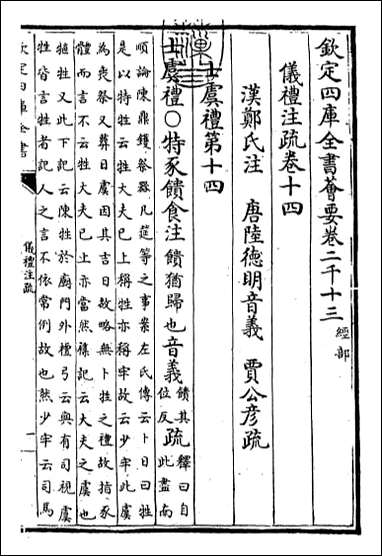 欽定四庫全書薈要卷二千十三 經部
儀禮注疏卷十四
漢鄭氏注 唐陸德明音義 賈公彥疏
士虞禮第十四
士虞禮〇特豕饋食注饋猶歸也音義饋其位反疏釋曰自此盡南
順論陳鼎鑊祭器几筵等之事案左氏傳云卜日曰牲
是以特牲云牲大夫已上稱牲亦稱牢故云少牢此虞
為喪祭又葬日虞因其吉日故略無卜牲之禮故指豕
體而言不云牲大夫已上亦當然雜記云大夫之虞也
犆牲又此下記云陳牲於廟門外檀弓云與有司視虞
牲皆言牲者記人之言不依常例故也然少牢云司馬
欽定四庫全書
儀禮注疏
一